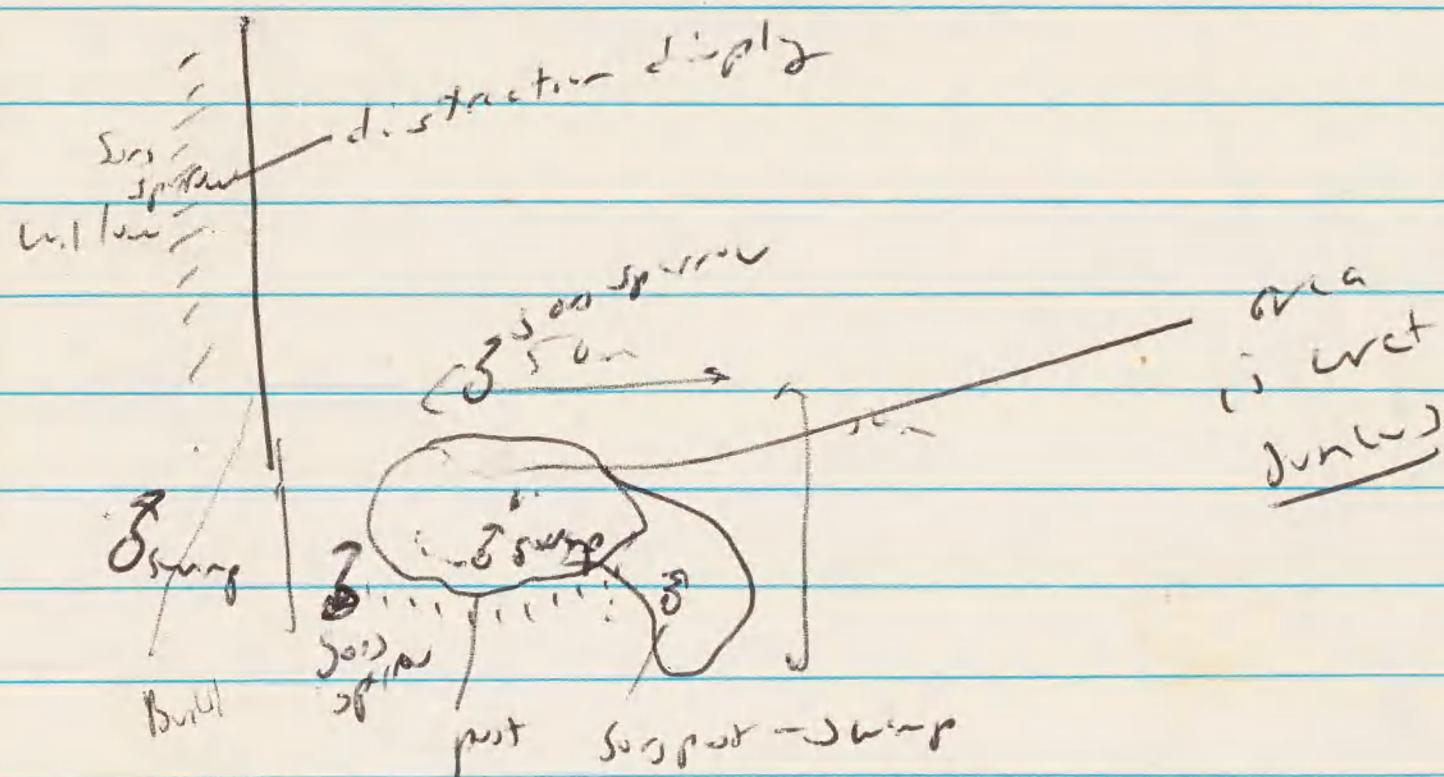 distraction display
Song
sparrow
willow
♂ song sparrow
50m
area
is wet
Juncus
50m
♂ swamp
♂ swamp
♂
♂
song
sparrow
Build
post
song post - swamp